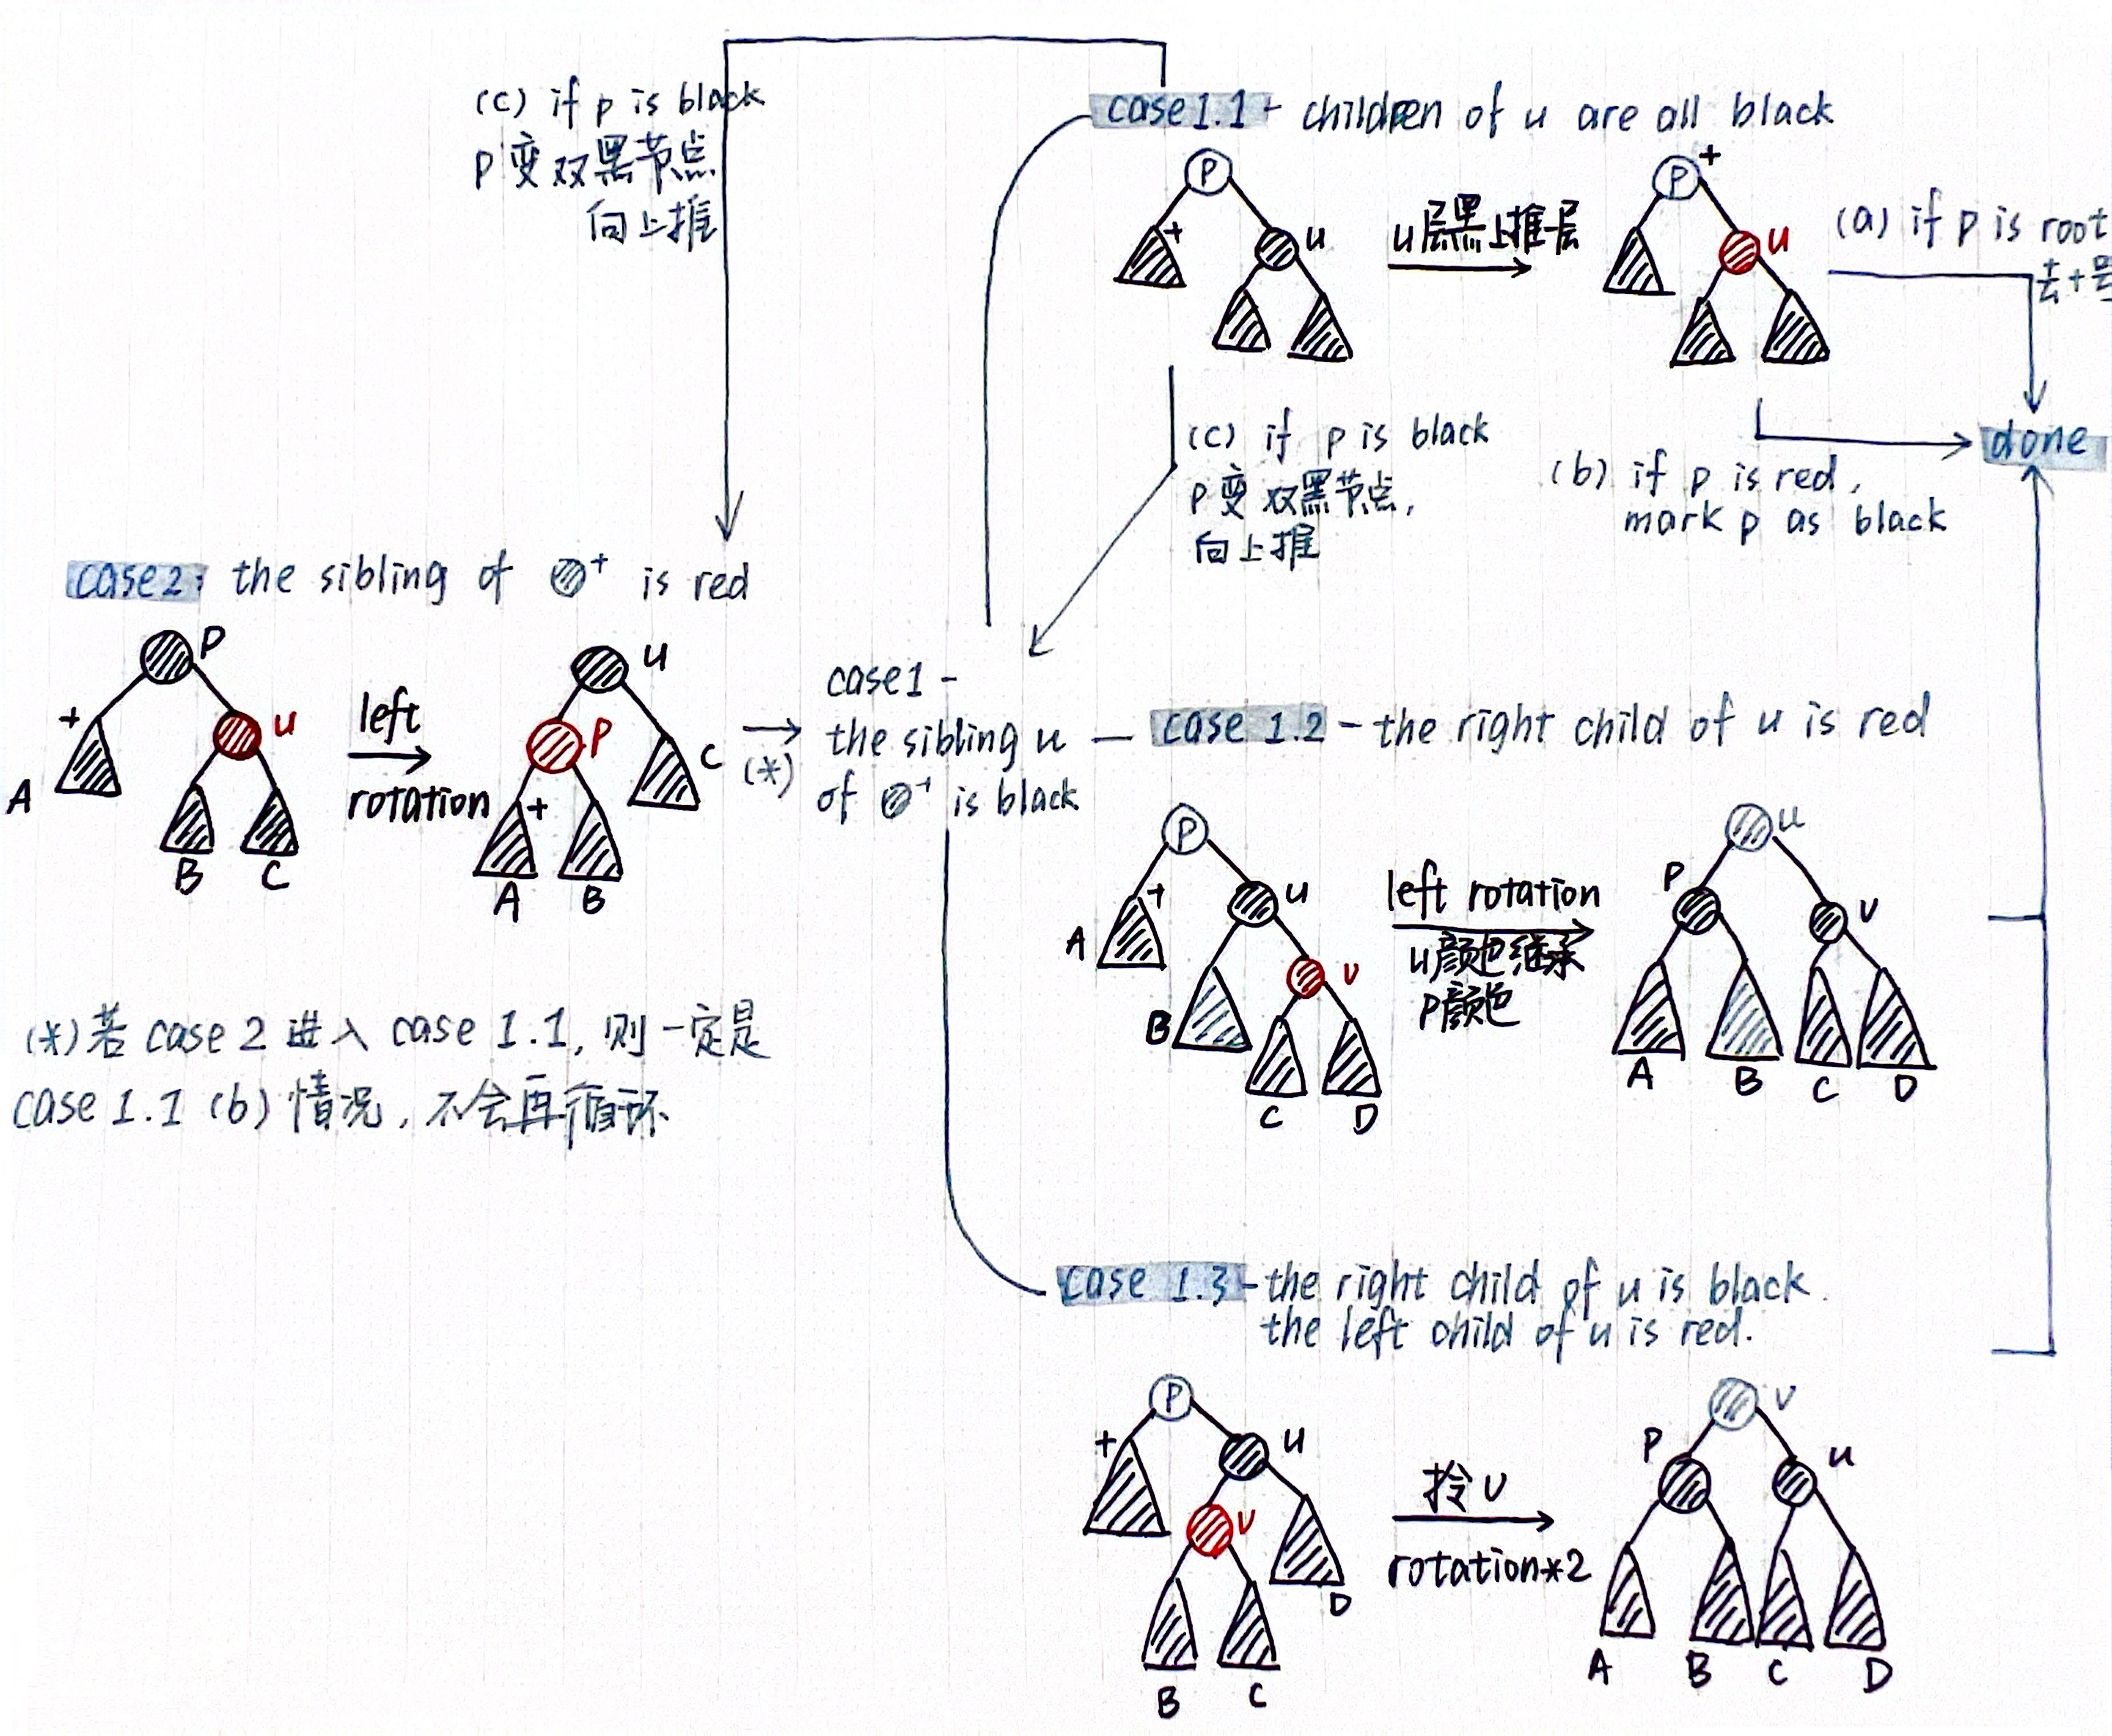 (c) if p is black
P变双黑节点
向上推
case1.1 - children of u are all black
P
+
u
u层黑上推一层
P
+
u
(a) if p is root
去+号
(c) if p is black
P变双黑节点,
向上推
(b) if p is red,
mark p as black
done
case2: the sibling of + is red
P
+
u
A
B
C
left
rotation
u
P
+
C
A
B
(*)
case1 -
the sibling u
of + is black
case 1.2 - the right child of u is red
P
+
u
A
v
B
C
D
left rotation
u颜色继承
P颜色
u
P
v
A
B
C
D
(*)若 case 2 进入 case 1.1, 则一定是
case 1.1 (b) 情况, 不会再循环
case 1.3 - the right child of u is black.
the left child of u is red.
P
+
u
v
D
B
C
拎v
rotation*2
v
P
u
A
B
C
D